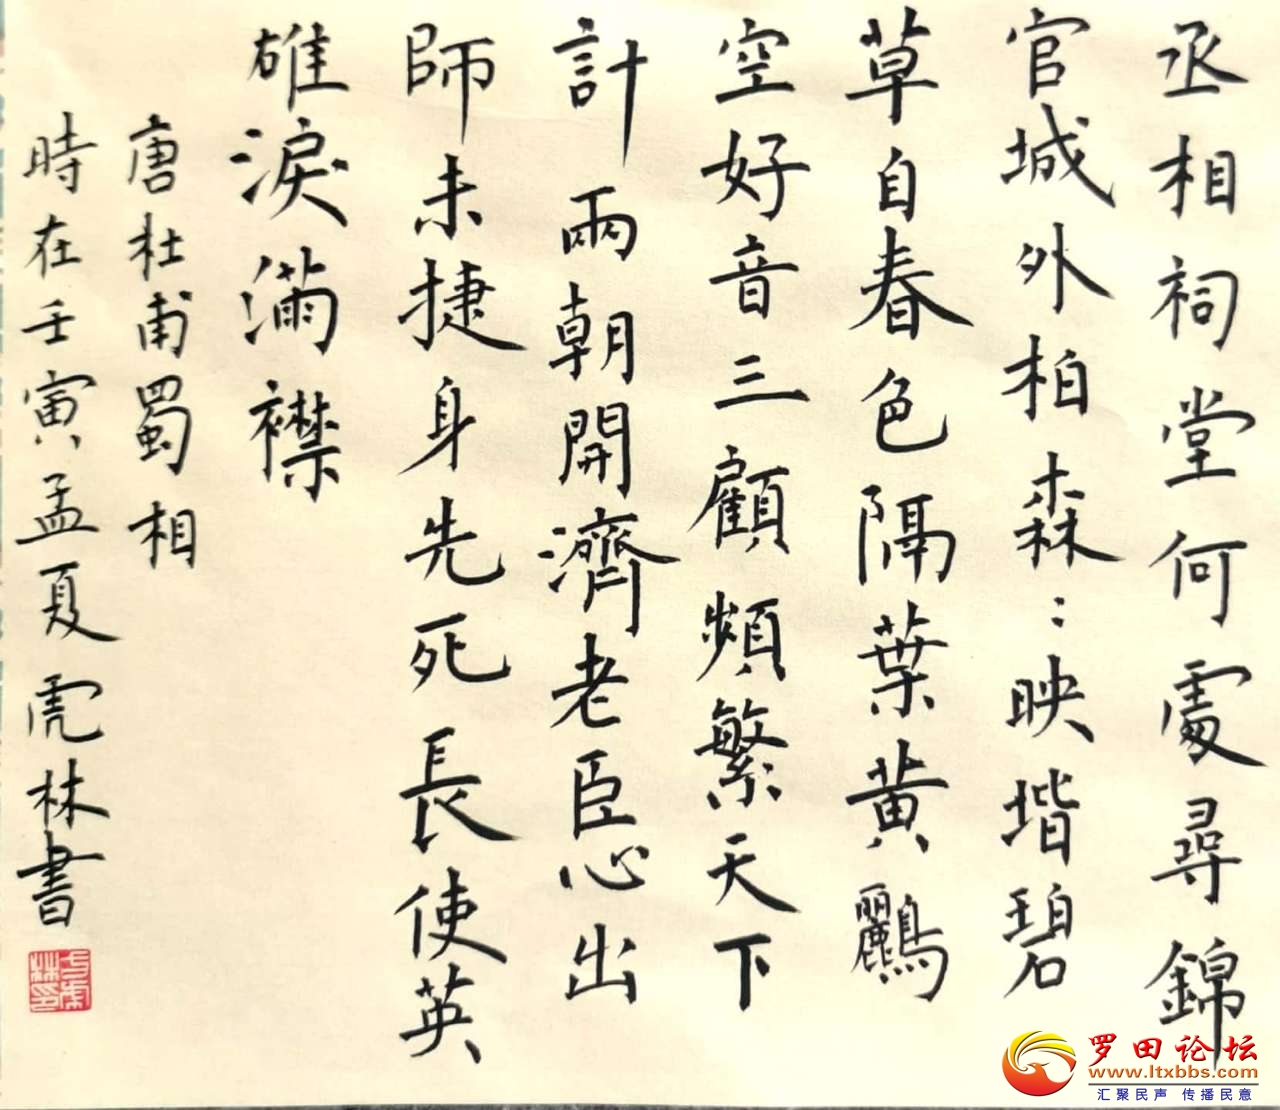 丞相祠堂何處尋錦
官城外柏森〻映堦碧
草自春色隔葉黄鸝
空好音三顧頻繁天下
計兩朝開濟老臣心出
師未捷身先死長使英
雄淚滿襟
唐杜甫蜀相
時在壬寅孟夏虎林書
罗田论坛
www.ltxbbs.com
汇聚民声 传播民意